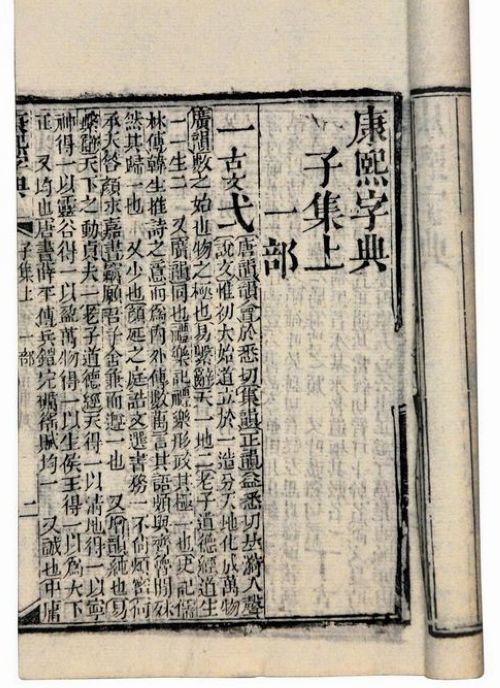 康熙字典
子集上
一部
一 古文弌 唐韻韻會於悉切集韻正韻益悉切𠀤漪入聲
說文惟初大始道立於一造分天地化成萬物
廣韻數之始也物之極也易繫辭天一地二老子道德經道生
一一生二 又廣韻同也禮樂記禮樂刑政其極一也史記儒
林傳韓生推詩之意而爲內外傳數萬言其語頗與齊魯閒殊
然其歸一也 又少也顏延之庭誥文選書務一不尚煩密何
承天答顏永嘉書竊願吾子舍兼而遵一也 又廣韻純也易
繫辭天下之動貞夫一老子道德經天得一以淸地得一以寧
神得一以靈谷得一以盈萬物得一以生侯王得一以爲天下
正 又均也唐書薛平傳兵鎧完礪徭賦均一 又誠也中庸
康熙字典 子集上 一部 二